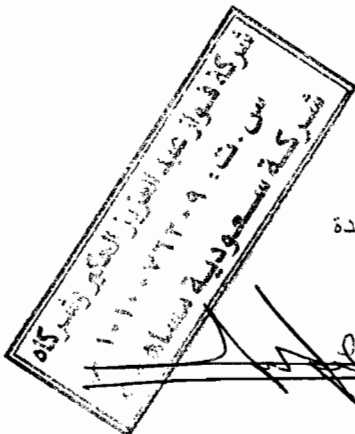 شركة فواز عبد العزيز الحكير وشركاه
س.ت: ١٠١٠٠٧٦٢٠٩
شركة سعودية
دة